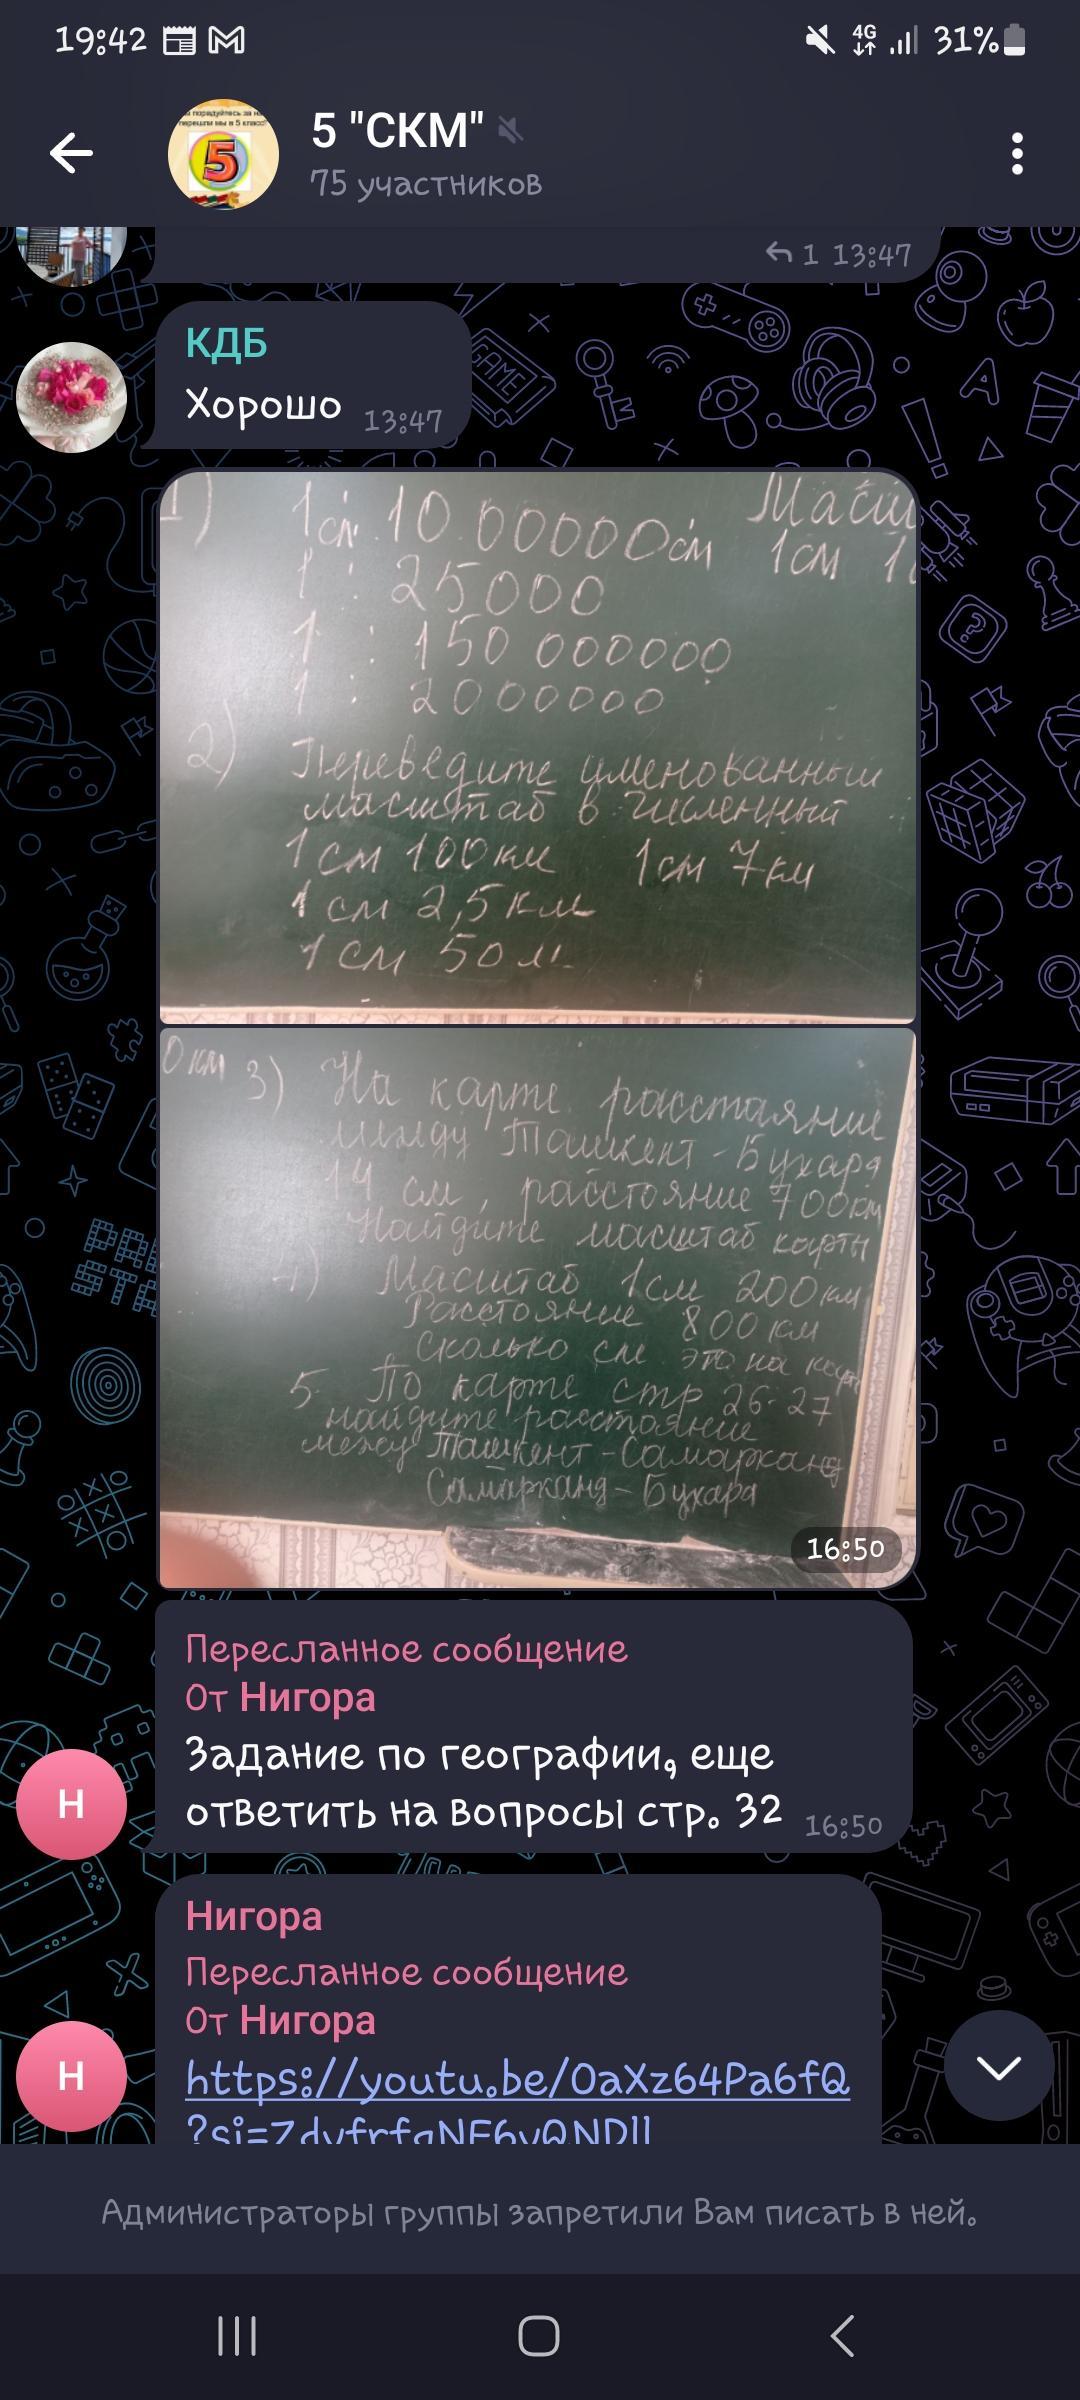 19:42
4G
31%
5 "СКМ"
75 участников
1 13:47
КДБ
Хорошо 13:47
1) 1см : 10.00000см Масш
1 : 25000 1см 1
1 : 150 000000
1 : 2000000
2) Переведите именованный
масштаб в численный
1 см 100км 1см 7км
1 см 2,5км
1 см 50м
0км 3) На карте расстаяние
между Ташкент - Бухара
14 см, расстояние 700км
Найдите масштаб карты
4) Масштаб 1см 200км
Расстояние 800 км
Сколько см это на карте
5. По карте стр 26-27
найдите расстояние
межу Ташкент - Самарканд
Самарканд - Бухара
16:50
Пересланное сообщение
От Нигора
Задание по географии, еще
ответить на вопросы стр. 32 16:50
Н
Нигора
Пересланное сообщение
От Нигора
https://youtu.be/0aXz64Pa6fQ
Н
Администраторы группы запретили Вам писать в ней.